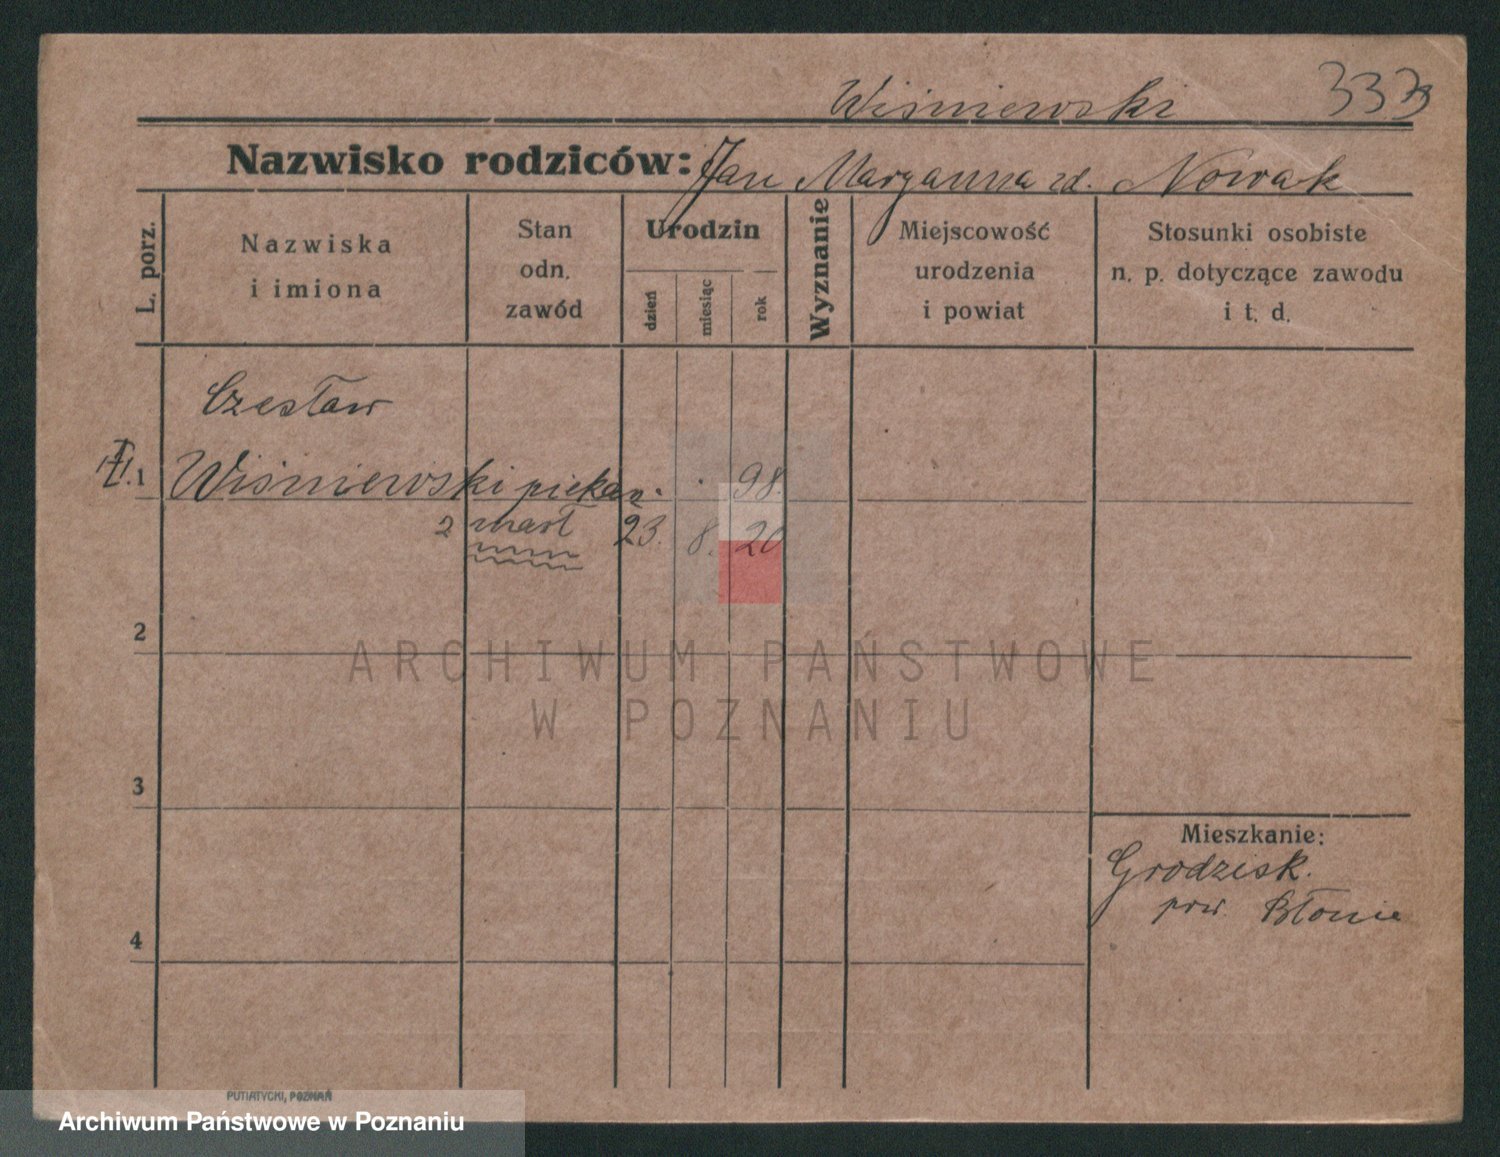 Wiśniewski 3373
Nazwisko rodziców: Jan Maryanna zd. Nowak
L. porz.
Nazwiska
i imiona
Stan
odn.
zawód
Urodzin
dzień
miesiąc
rok
Wyznanie
Miejscowość
urodzenia
i powiat
Stosunki osobiste
n. p. dotyczące zawodu
i t. d.
Czesław
1 Wiśniewski piekarz. . 98.
zmarł 23. 8. 20
2
3
4
Mieszkanie:
Grodzisk.
pow. Błonie
ARCHIWUM PAŃSTWOWE
W POZNANIU
PUTIATYCKI, POZNAŃ
Archiwum Państwowe w Poznaniu